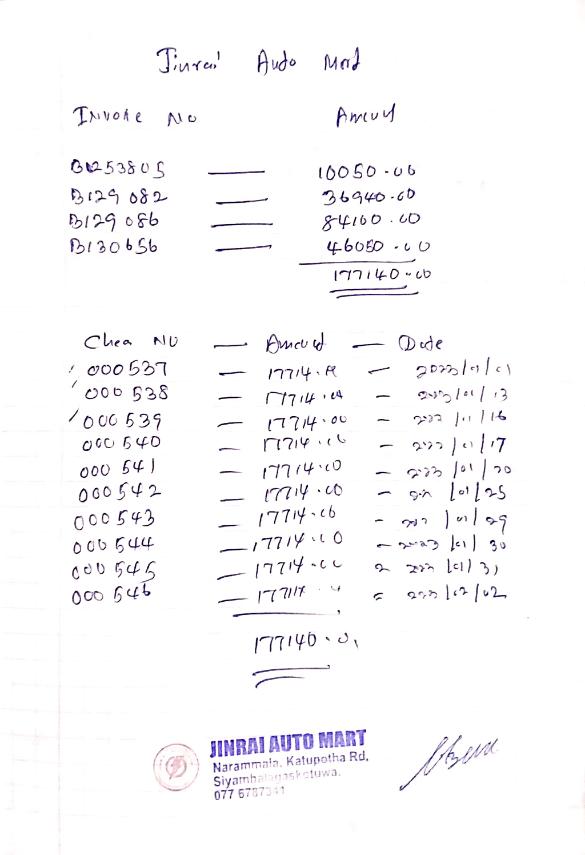 Jinrai Auto Mart
Invoice No Amount
B1253805 — 10050.00
B129 082 — 36940.00
B129 086 — 84100.00
B130656 — 46050.00
177140.00
Cheq No — Amount — Date
000537 — 17714.00 — 2023/01/01
000 538 — 17714.00 — 2023/01/13
000539 — 17714.00 — 2023/01/16
000 540 — 17714.00 — 2023/01/17
000 541 — 17714.00 — 2023/01/20
000542 — 17714.00 — /01/25
000543 — 17714.00 — /01/29
000 544 — 17714.00 — 2023/01/30
000 545 — 17714.00 — 2023/01/31
000 546 — 17714. — 2023/02/02
177140.0
JINRAI AUTO MART
Narammala, Katupotha Rd,
Siyambalagaskotuwa.
077 6787341